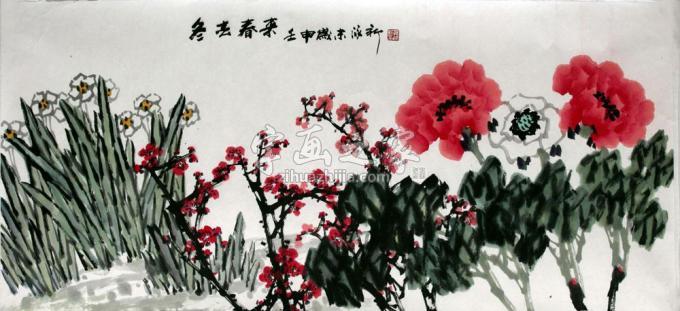 冬去春来 壬申歲末
字画之家
zihuazhijia.com